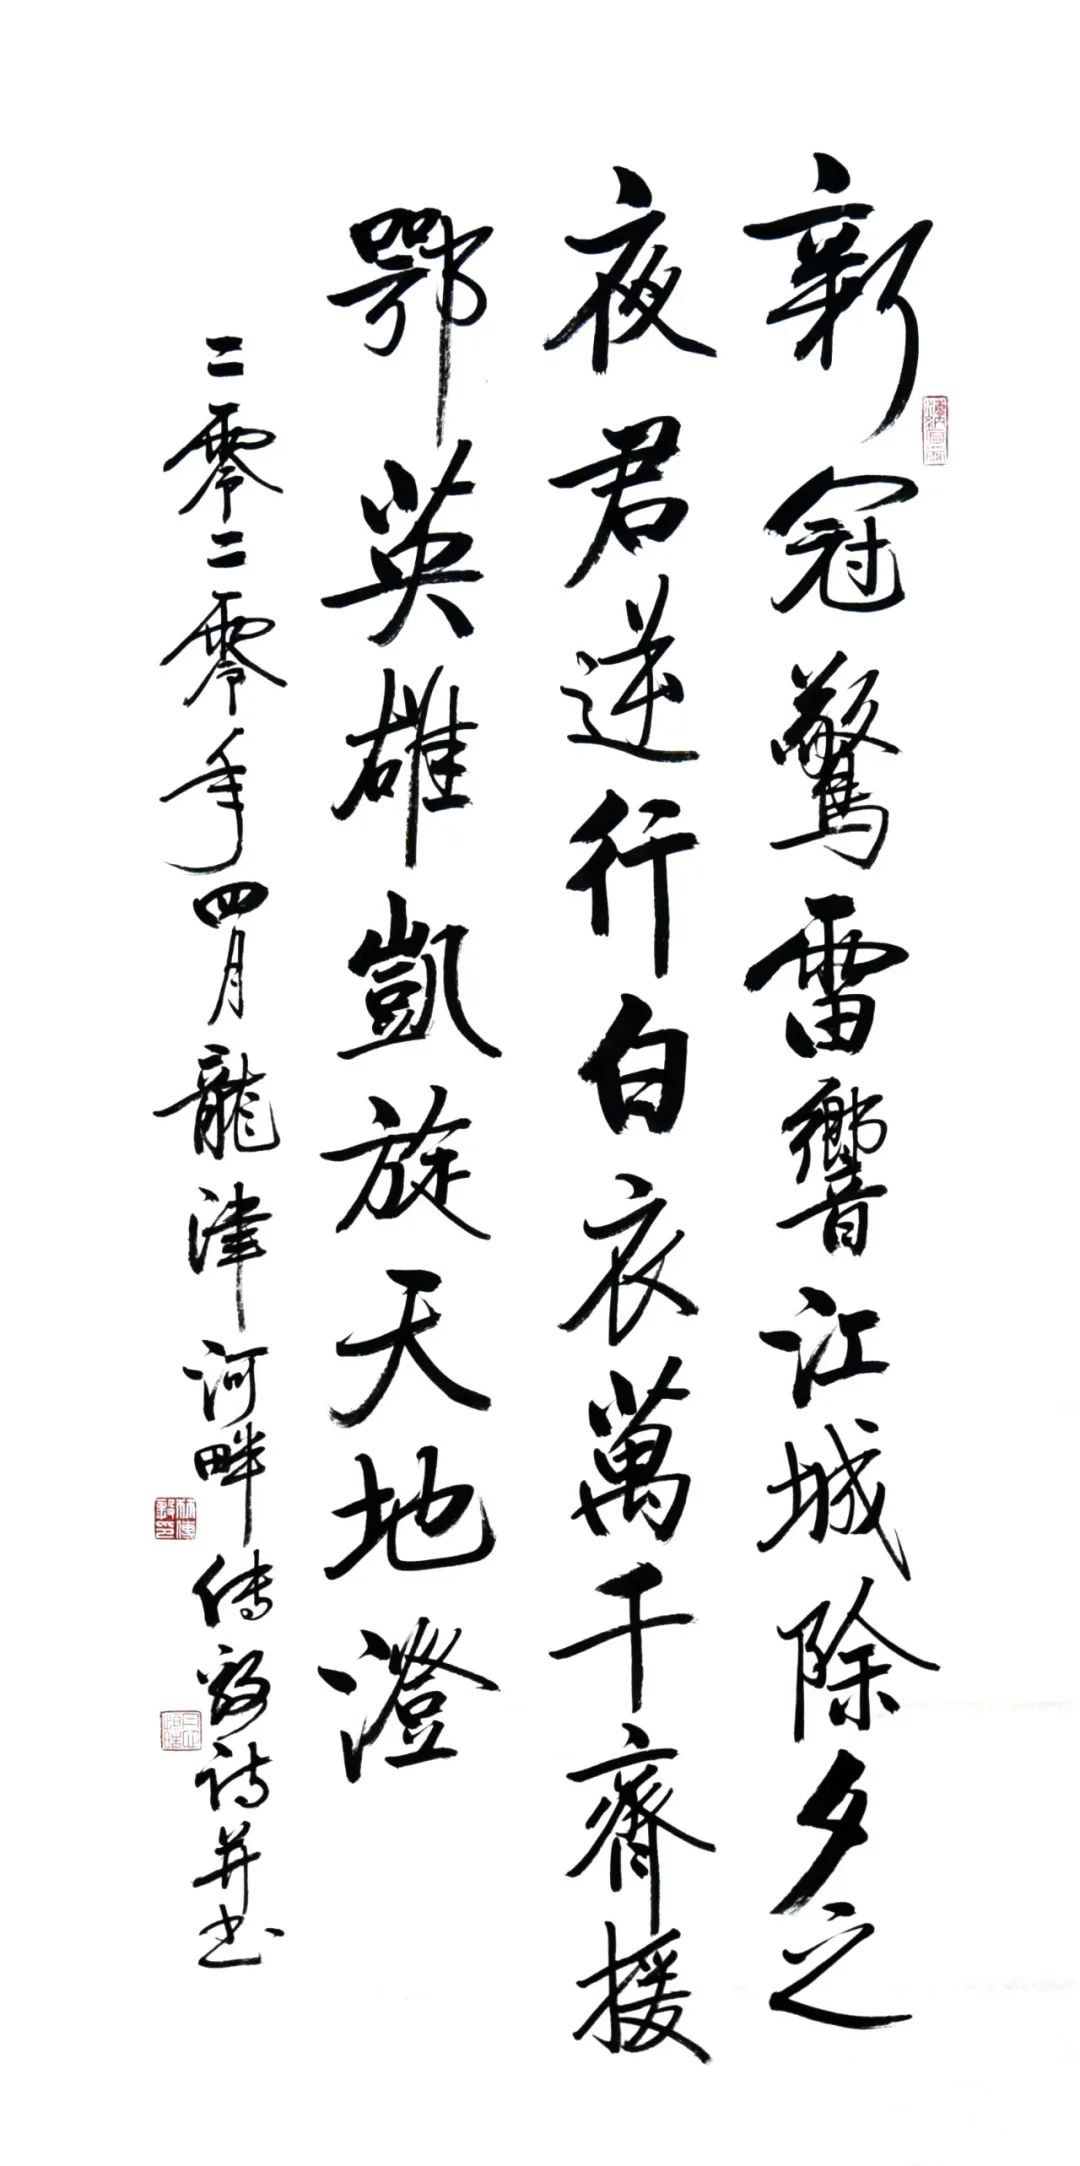 新冠驚雷響江城除夕之
夜君逆行白衣萬千齊援
鄂英雄凱旋天地澄
二零二零年四月龍津河畔传毅诗并书